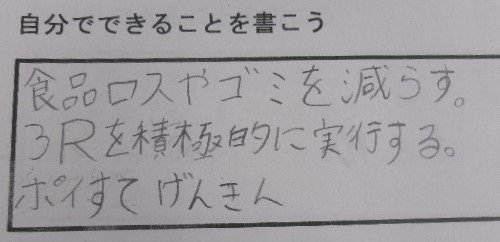 自分でできることを書こう
食品ロスやゴミを減らす。
3Rを積極的に実行する。
ポイすてげんきん